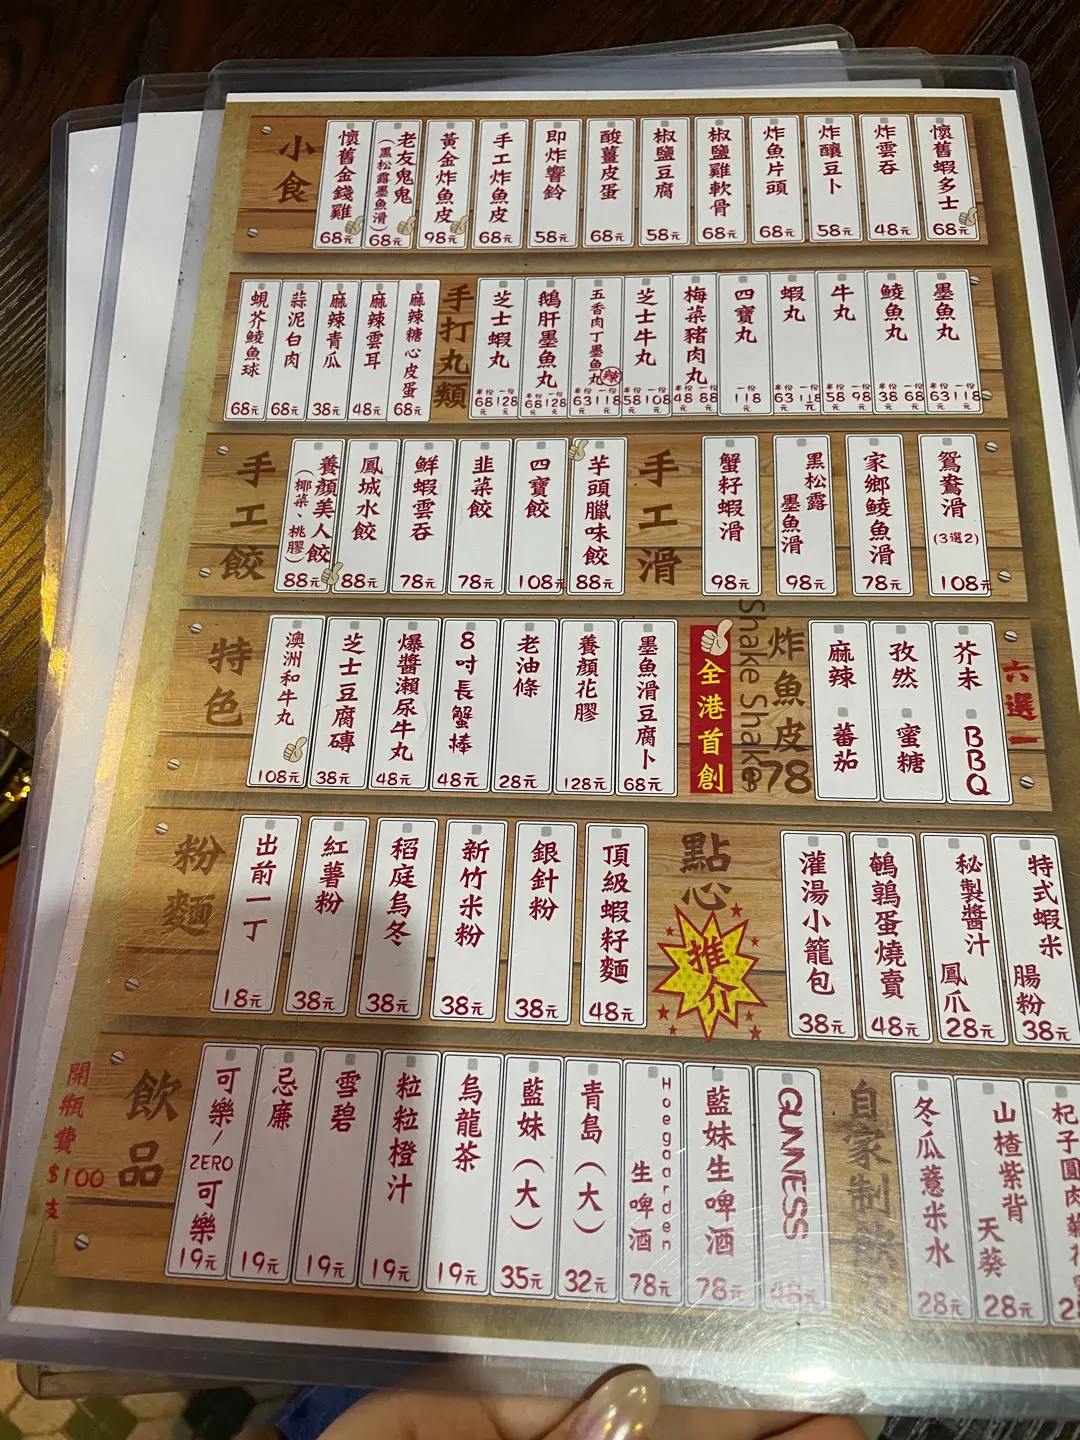 小食
懷舊金錢雞 68元
老友鬼鬼 (黑松露墨魚滑) 68元
黃金炸魚皮 98元
手工炸魚皮 68元
即炸響鈴 58元
酸薑皮蛋 68元
椒鹽豆腐 58元
椒鹽雞軟骨 68元
炸魚片頭 68元
炸釀豆卜 58元
炸雲吞 48元
懷舊蝦多士 68元
蜆芥鯪魚球 68元
蒜泥白肉 68元
麻辣青瓜 38元
麻辣雲耳 48元
麻辣糖心皮蛋 68元
手打丸類
芝士蝦丸 半份68元 一份128元
鵝肝墨魚丸 半份68元 一份128元
五香肉丁墨魚丸 辣 半份63元 一份118元
芝士牛丸 半份58元 一份108元
梅菜豬肉丸 半份48元 一份88元
四寶丸 一份118元
蝦丸 半份63元 一份118元
牛丸 半份58元 一份98元
鯪魚丸 半份38元 一份68元
墨魚丸 半份63元 一份118元
手工餃
養顏美人餃 (椰菜、桃膠) 88元
鳳城水餃 88元
鮮蝦雲吞 78元
韭菜餃 78元
四寶餃 108元
芋頭臘味餃 88元
手工滑
蟹籽蝦滑 98元
黑松露墨魚滑 98元
家鄉鯪魚滑 78元
鴛鴦滑 (3選2) 108元
特色
澳洲和牛丸 108元
芝士豆腐磚 38元
爆醬瀨尿牛丸 48元
8吋長蟹棒 48元
老油條 28元
養顏花膠 128元
墨魚滑豆腐卜 68元
全港首創
Shake Shake
炸魚皮 78
麻辣 蕃茄
孜然 蜜糖
芥末 BBQ
六選一
粉麵
出前一丁 18元
紅薯粉 38元
稻庭烏冬 38元
新竹米粉 38元
銀針粉 38元
頂級蝦籽麵 48元
點心
推介
灌湯小籠包 38元
鵪鶉蛋燒賣 48元
秘製醬汁鳳爪 28元
特式蝦米腸粉 38元
開瓶費 $100 支
飲品
可樂/ZERO可樂 19元
忌廉 19元
雪碧 19元
粒粒橙汁 19元
烏龍茶 19元
藍妹(大) 35元
青島(大) 32元
Hoegaarden 生啤酒 78元
藍妹生啤酒 78元
GUINNESS 48元
自家制飲品
冬瓜薏米水 28元
山楂紫背天葵 28元
杞子圓肉菊花